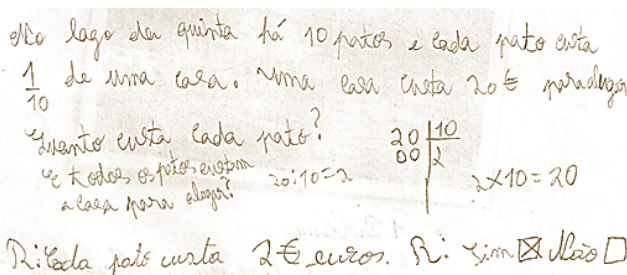 No lago da quinta há 10 patos e cada pato custa
1/10 de uma casa. Uma casa custa 20 € para alugar
Quanto custa cada pato?
20 | 10
00 | 2
E todos os patos custam
a casa para alugar?
20:10=2
2×10=20
R: Cada pato custa 2 € euros. R: Sim ☒ Não ☐